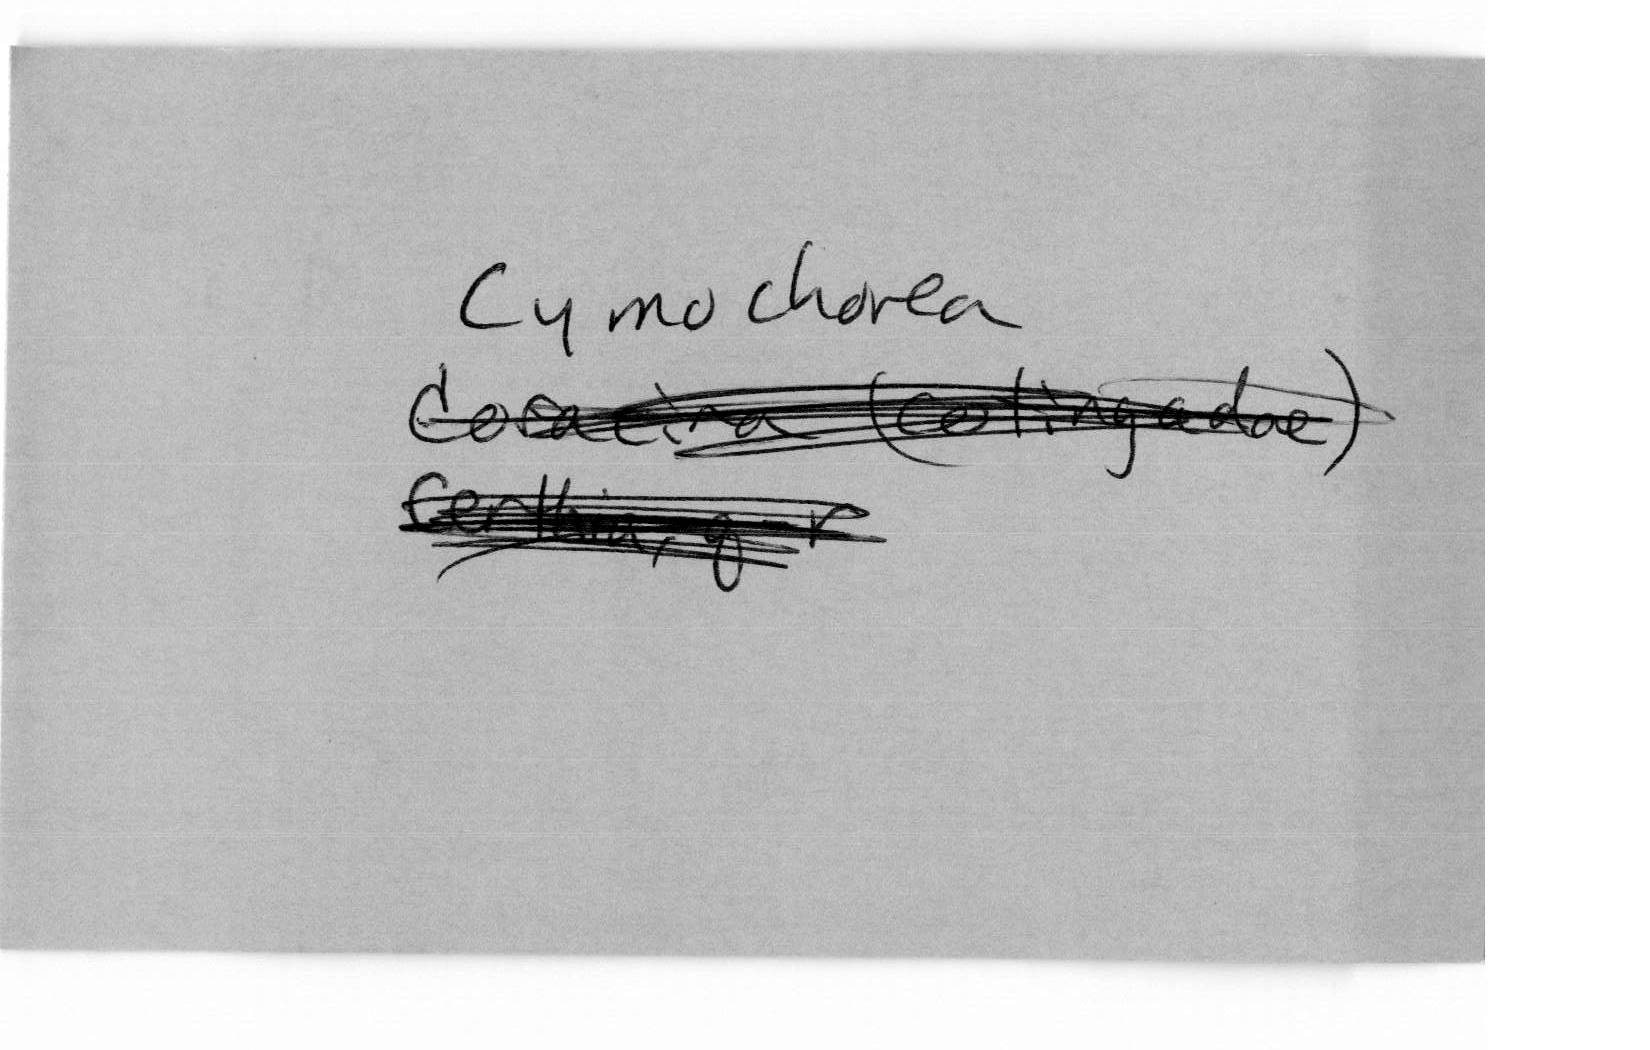 Cymochorea
Coracina (cotingadae)
Certhia, g-r